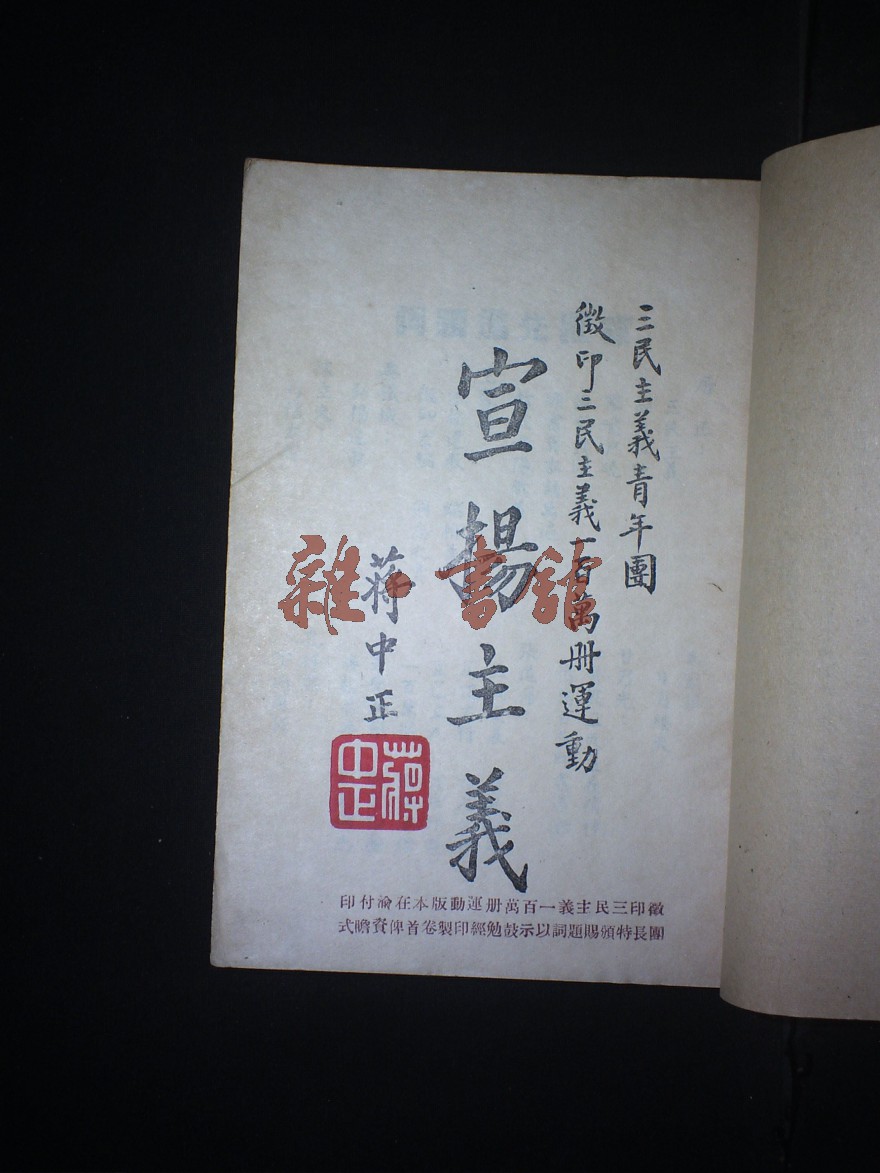 三民主義青年團
徵印三民主義一百萬册運動
宣揚主義
蔣中正
蔣中正
徵印三民主義一百萬册運動版本在渝付印
團長特頒賜題詞以示鼓勉經印製卷首俾資瞻式
雜·書館